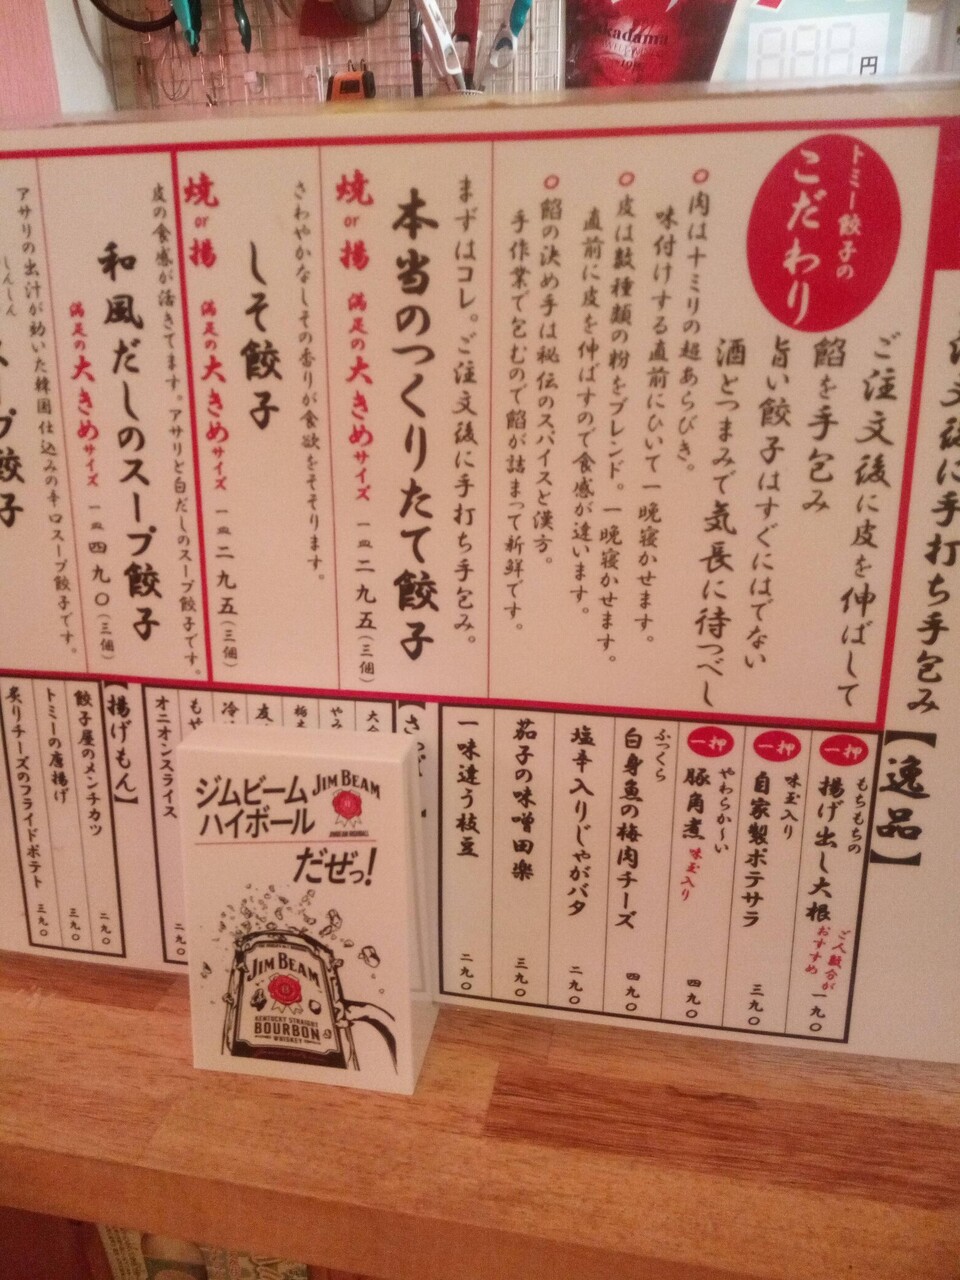 kadama
円
ご注文後に手打ち手包み
トミー餃子の
こだわり
ご注文後に皮を伸ばして
餡を手包み
旨い餃子はすぐにはでない
酒とつまみで気長に待つべし
○肉は十ミリの超あらびき。
味付けする直前にひいて一晩寝かせます。
○皮は数種類の粉をブレンド。一晩寝かせます。
直前に皮を伸ばすので食感が違います。
○餡の決め手は秘伝のスパイスと漢方。
手作業で包むので餡が詰まって新鮮です。
まずはコレ。ご注文後に手打ち手包み。
本当のつくりたて餃子
焼or揚 満足の大きめサイズ 一皿二九五(三個)
さわやかなしその香りが食欲をそそります。
しそ餃子
焼or揚 満足の大きめサイズ 一皿二九五(三個)
皮の食感が活きてます。アサリと白だしのスープ餃子です。
和風だしのスープ餃子
満足の大きめサイズ 一皿四九〇(三個)
アサリの出汁が効いた韓国仕込みの辛口スープ餃子です。
しんしん
スープ餃子
【逸品】
一押 もちもちの
揚げ出し大根 ご人数合がおすすめ 一九〇
一押 味玉入り
自家製ポテサラ 三九〇
一押 やわらか〜い
豚角煮 味玉入り 四九〇
ふっくら
白身魚の梅肉チーズ 四九〇
塩辛入りじゃがバタ 二九〇
茄子の味噌田楽 三九〇
一味違う枝豆 二九〇
オニオンスライス 二九〇
【揚げもん】
餃子屋のメンチカツ 二九〇
トミーの唐揚げ 三九〇
炙りチーズのフライドポテト 三九〇
ジムビーム
ハイボール
JIM BEAM
だぜっ!
JIM BEAM
KENTUCKY STRAIGHT
BOURBON
WHISKEY